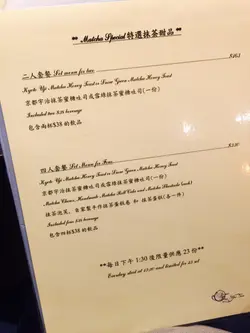 ** Matcha Special 特選抹茶甜品 **
二人套餐 Set menu for two
Kyoto Uji Matcha Honey Toast or Luxe Green Matcha Honey Toast
京都宇治抹茶蜜糖吐司或雪綠抹茶蜜糖吐司(一份)
Included two $38 beverage
包含兩杯$38的飲品
四人套餐 Set Menu for Four
Kyoto Uji Matcha Honey Toast or Luxe Green Matcha Honey Toast
京都宇治抹茶蜜糖吐司或雪綠抹茶蜜糖吐司(一份)
Matcha Handmade Matcha Roll Cake and Matcha
抹茶泡芙, 自家製手作抹茶蛋糕卷 和 抹茶蛋糕(各一件)
Included four $38 beverage
包含四杯$38的飲品
**每日下午 1:30 後限量供應 23 份**
Everyday start at 13:30 and limited for 23 set